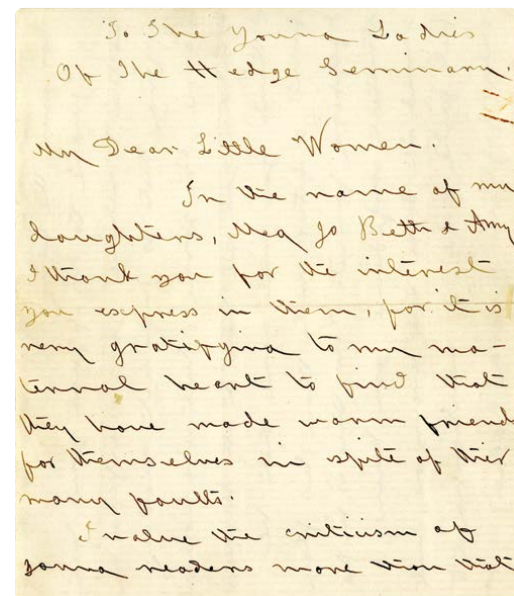 To The Young Ladies
Of The Hedge Seminary.
My Dear Little Women.
In the name of my
daughters, Meg Jo Beth & Amy
I thank you for the interest
you express in them, for it is
very gratifying to my ma-
ternal heart to find that
they have made warm friends
for themselves in spite of their
many faults.
I value the criticism of
young readers more than that